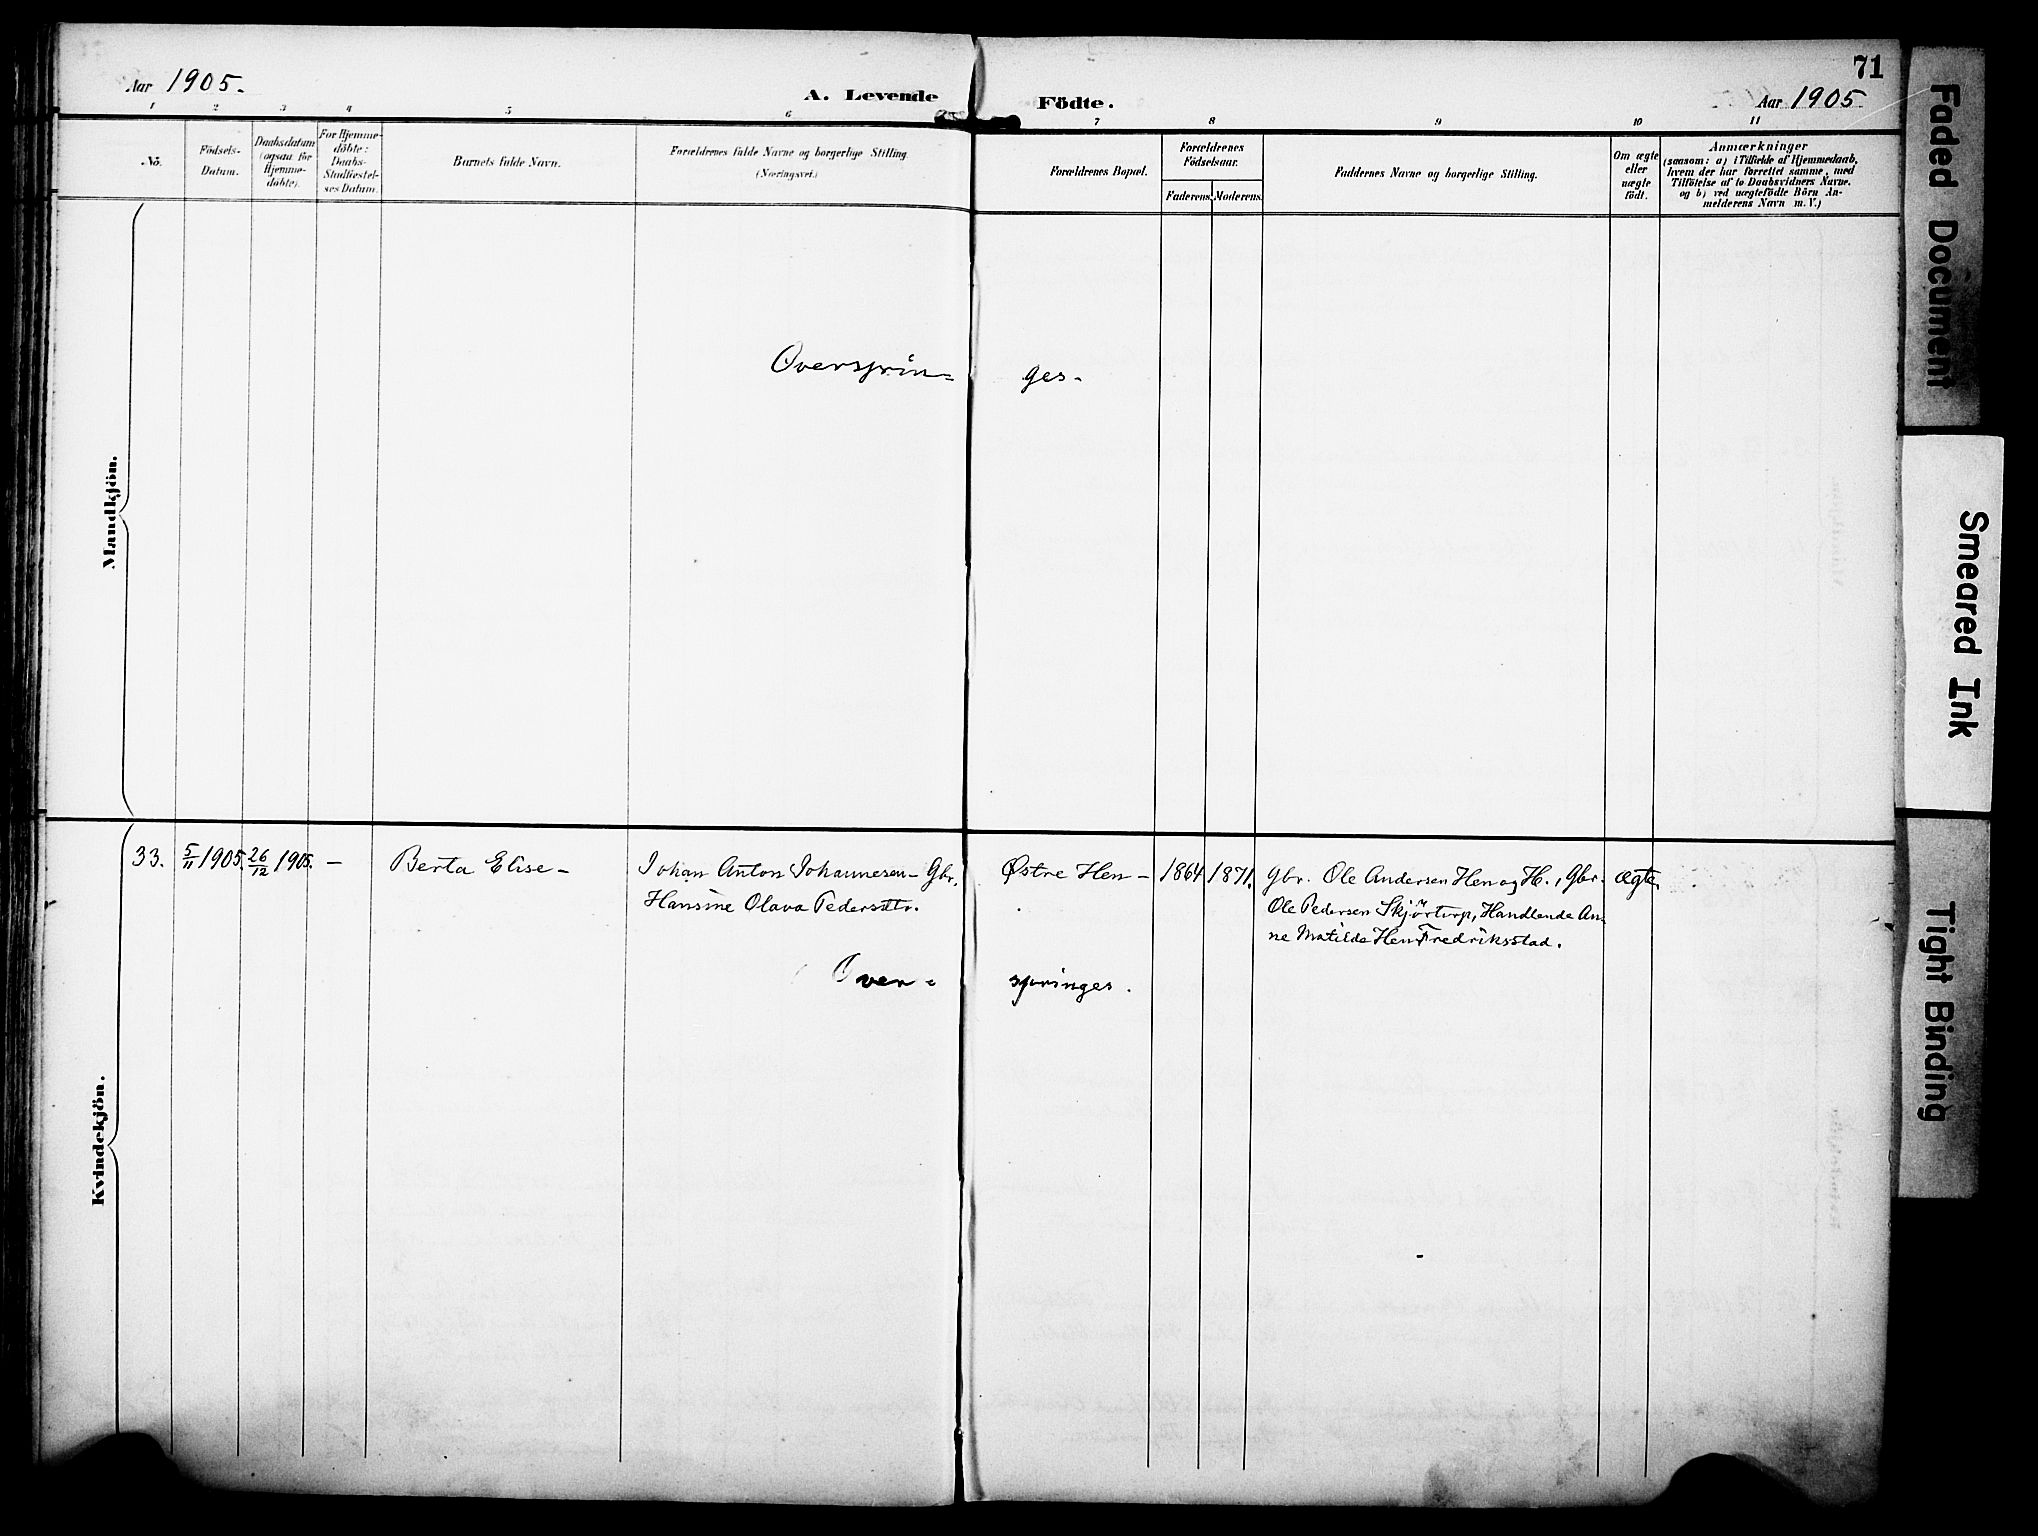 71
Aar 1905.
A. Levende Födte.
Aar 1905.
1 2 3 4 5 6 7 8 9 10 11
No.
Födsels-
Datum.
Daabsdatum
(ogsaa for
Hjemme-
döbte).
For Hjemme-
döbte:
Daabs-
Stadfæstel-
ses Datum.
Barnets fulde Navn.
Forældrenes fulde Navne og borgerlige Stilling.
(Næringsvei.)
Forældrenes Bopæl.
Forældrenes
Födselsaar.
Faderens. Moderens.
Faddernes Navne og borgerlige Stilling.
Om ægte
eller
uægte
födt.
Anmærkninger
(saasom: a) i Tilfælde af Hjemmedaab,
hvem der har forrettet samme, med
Tilföielse af to Daabsvidners Navne.
og b) ved uægtefödte Börn An-
melderens Navn m. V.)
Mandkjön.
Oversprin- ges.
Kvindekjön.
33. 5/11 1905. 26/12 1905. – Berta Elise – Johan Anton Johannesen – Gbr. Østre Hen – 1864 1871. Gbr. Ole Andersen Hen og H., Gbr. ægte.
Hansine Olava Pedersdtr. Ole Pedersen Skjörtorp, Handlende An-
ne Matilde Hen Fredriksstad.
Over- springes.
Faded Document
Smeared Ink
Tight Binding